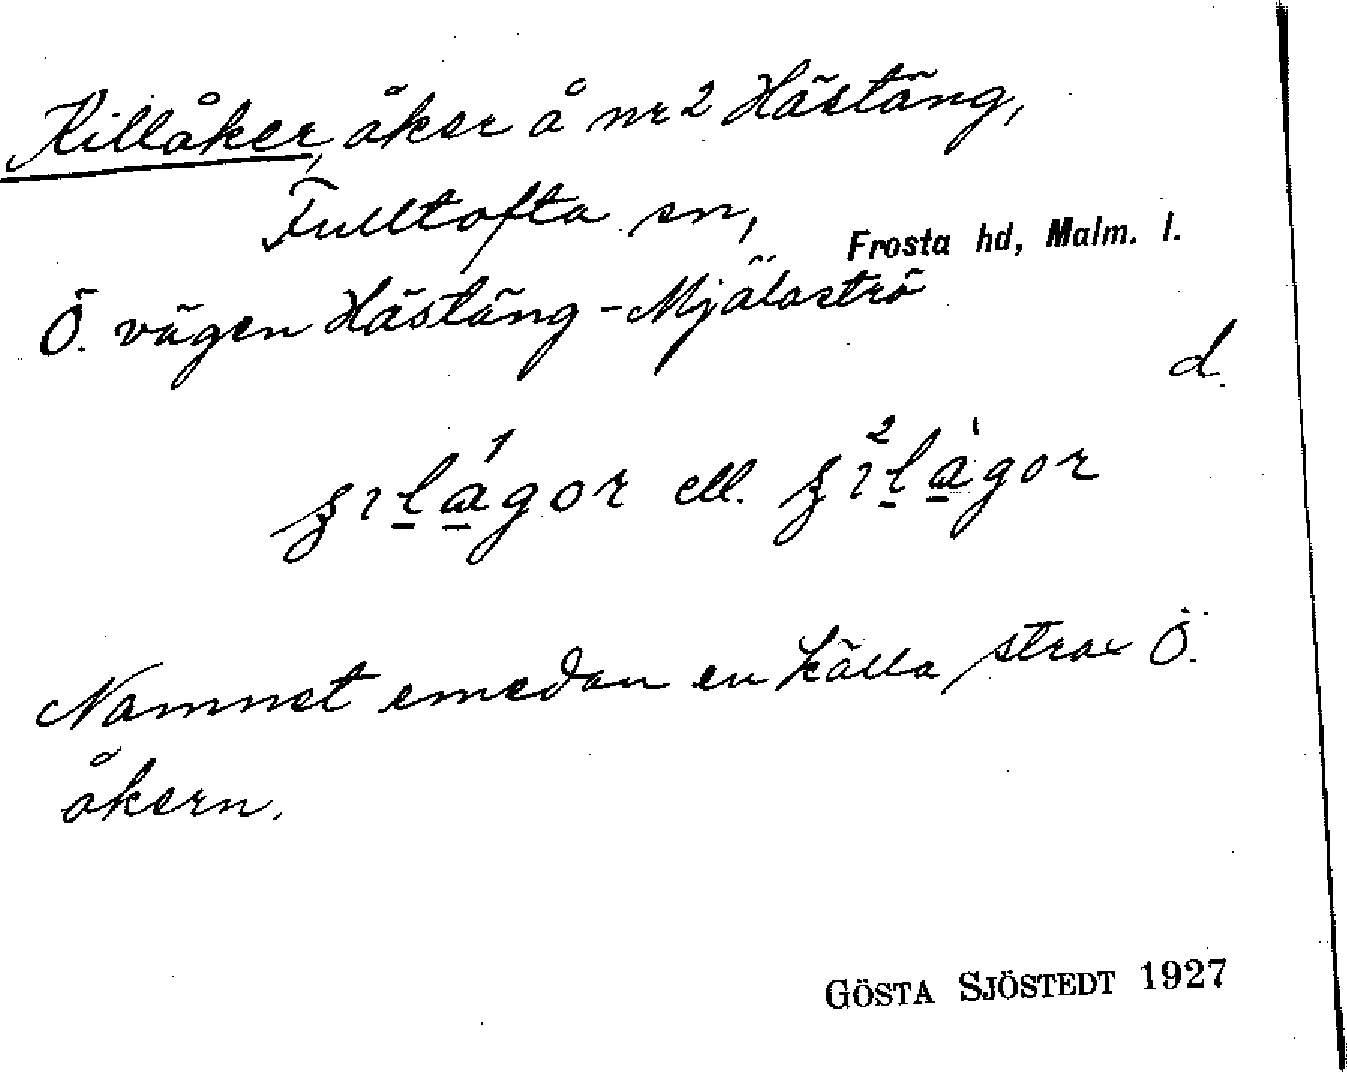 Killåker, åker å nr 2 Hästäng,
Fulltofta sn, Frosta hd, Malm. l.
Ö. vägen Hästäng - Mjälaströ
d.
ell.
Namnet emedan en källa strax Ö.
åkern.
GÖSTA SJÖSTEDT 1927